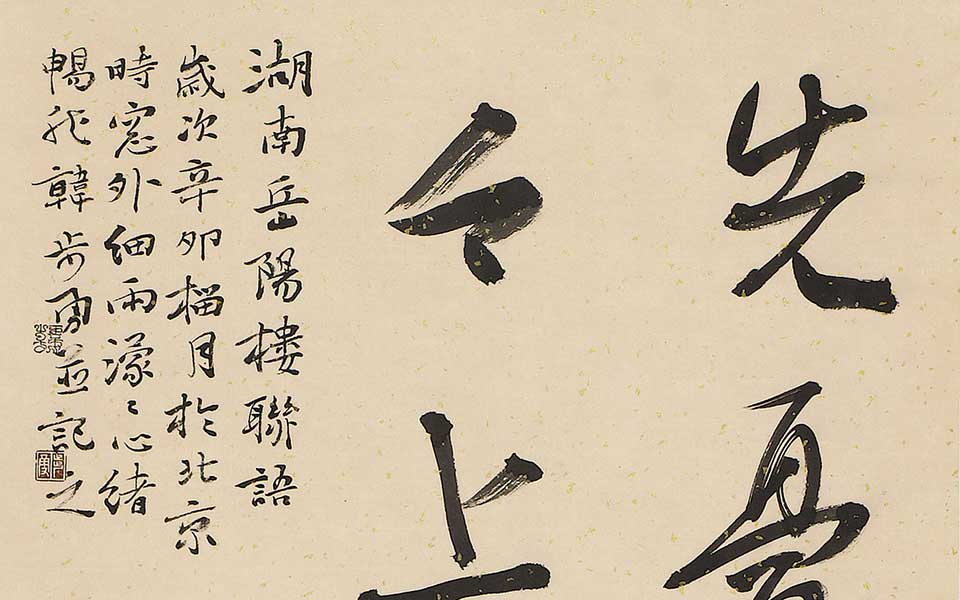 先憂
今上
湖南岳陽樓聯語
歲次辛卯榴月於北京
時窓外細雨濛〻心緒
暢然韓步勇並記之